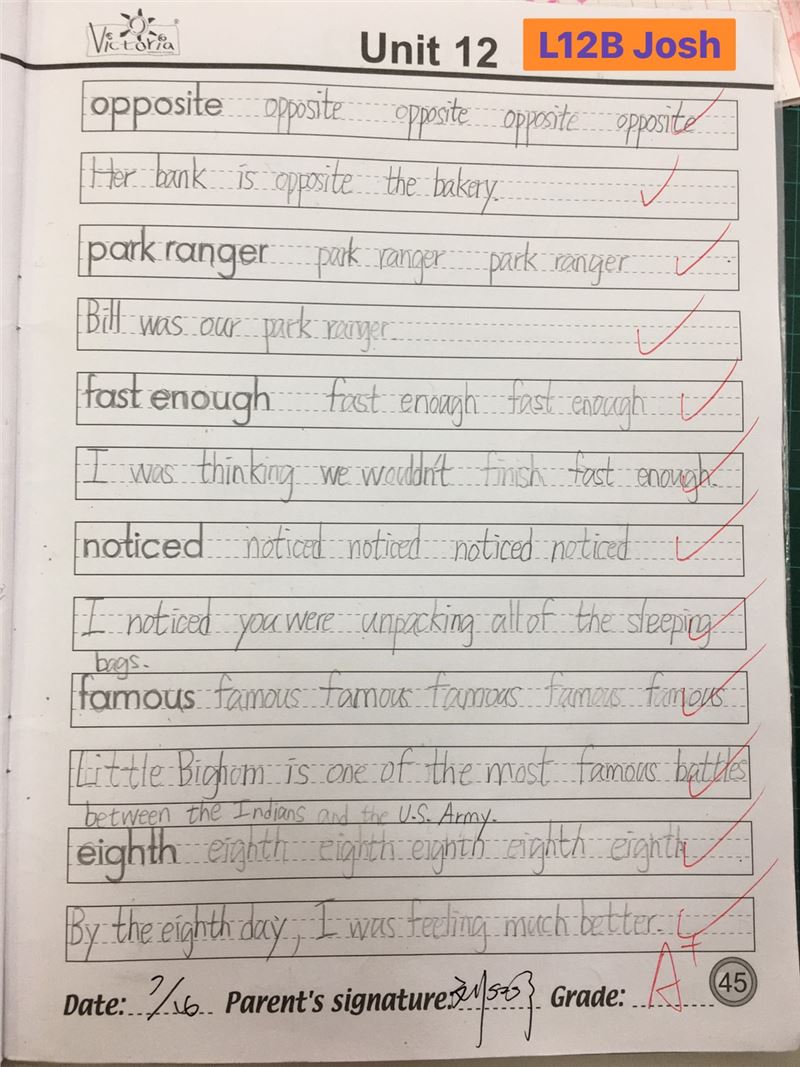 Victoria
Unit 12
L12B Josh
opposite opposite opposite opposite opposite
Her bank is opposite the bakery.
park ranger park ranger park ranger
Bill was our park ranger.
fast enough fast enough fast enough
I was thinking we wouldn't finish fast enough.
noticed noticed noticed noticed noticed
I noticed you were unpacking all of the sleeping
bags.
famous famous famous famous famous famous
Little Bighorn is one of the most famous battles
between the Indians and the U.S. Army.
eighth eighth eighth eighth eighth eighth
By the eighth day, I was feeling much better.
Date: 7/26 Parent's signature: Grade: A+ 45